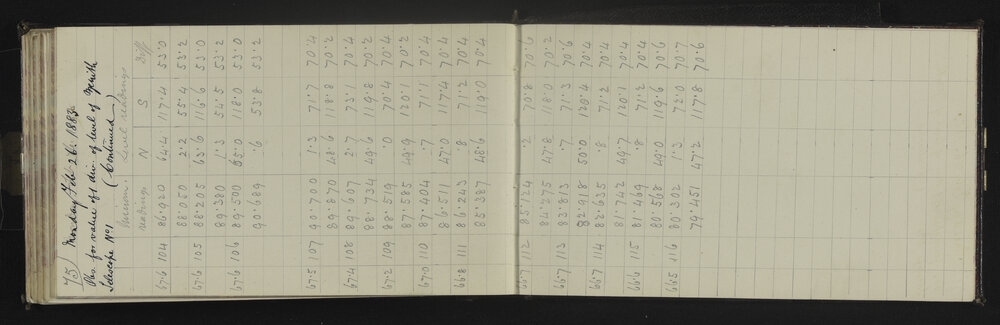 75) Monday Feb 26. 1883
Obs. for value of 1 div. of level of Zenith
Telescope No 1 (Continued)
Microm. Level readings
readings N S Diff
67.6 104 86.920 64.4 117.4 53.0
88.050 2.2 55.4 53.2
67.6 105 88.205 63.6 116.6 53.0
89.380 1.3 54.5 53.2
67.6 106 89.500 65.0 118.0 53.0
90.689 .6 53.8 53.2
67.5 107 90.700 1.3 71.7 70.4
89.870 48.6 118.8 70.2
67.4 108 89.697 2.7 73.1 70.4
88.734 49.6 119.8 70.2
67.2 109 88.519 .0 70.4 70.4
87.585 49.9 120.1 70.2
67.0 110 87.404 .7 71.1 70.4
86.511 47.0 117.4 70.4
66.8 111 86.243 .8 71.2 70.4
85.387 48.6 119.0 70.4
66.7 112 85.124 .2 70.8 70.6
84.275 47.8 118.0 70.2
66.7 113 83.813 .7 71.3 70.6
82.918 50.0 120.4 70.4
66.7 114 82.635 .8 71.2 70.4
81.742 49.7 120.1 70.4
66.6 115 81.469 .8 71.2 70.4
80.568 49.0 119.6 70.6
66.5 116 80.302 1.3 72.0 70.7
79.451 47.2 117.8 70.6